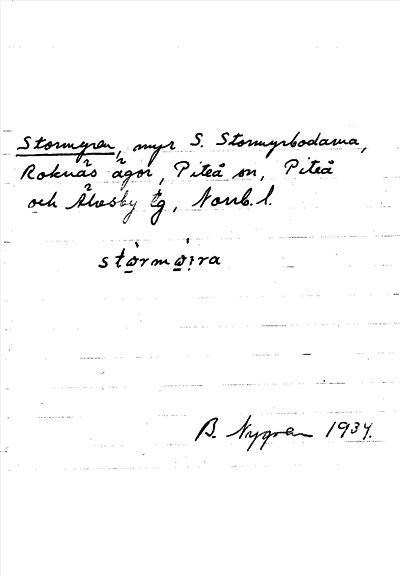 Stormyran, myr S. Stormyrbodarna,
Roknäs ägor, Piteå sn, Piteå
och Älvsby tg, Norrb. l.
stòrmòi̇ra
B. Nygren 1934.